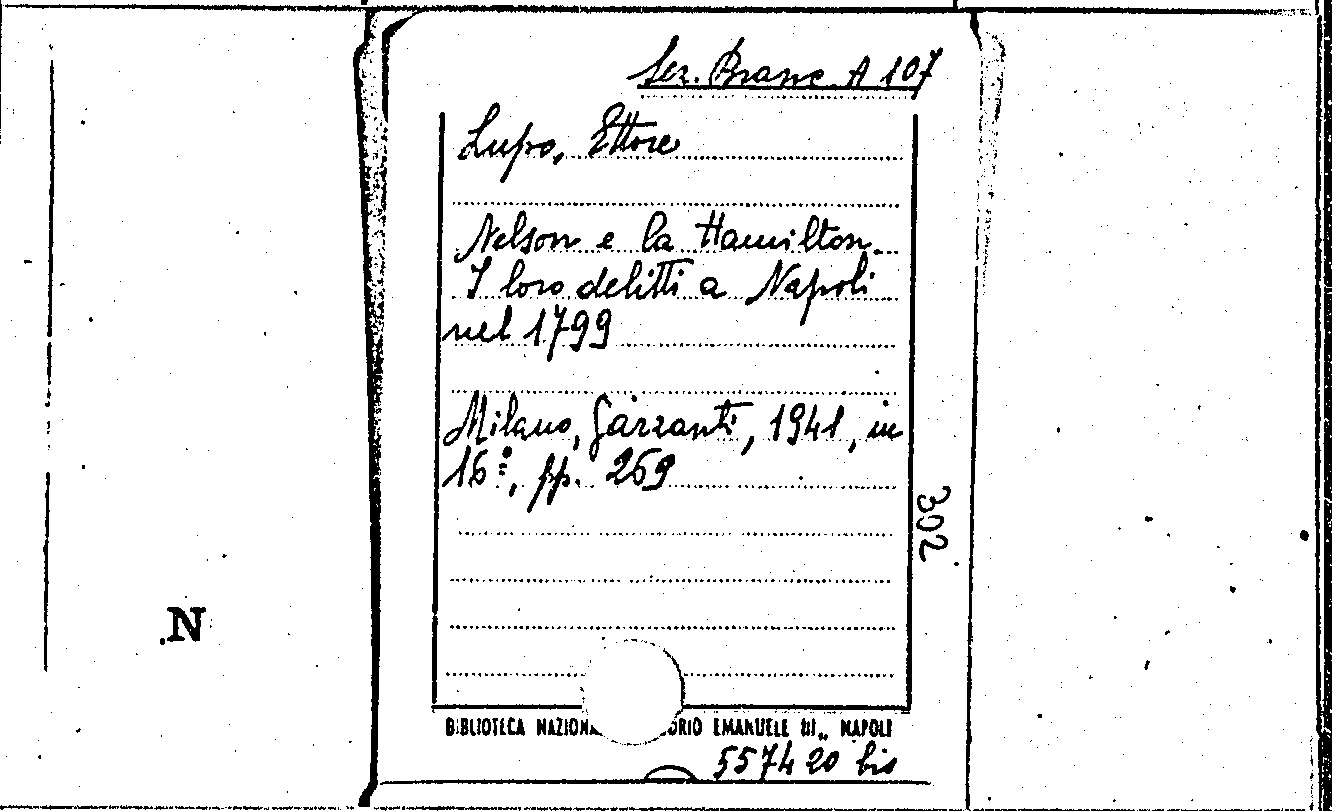 Sez. Branc. A 107
Lupo, Ettore
Nelson e la Hamilton.
I loro delitti a Napoli
nel 1799
Milano, Garzanti, 1941, in
16º, pp. 269
302
N
BIBLIOTECA NAZIONA ORIO EMANUELE III„ NAPOLI
557420 bis